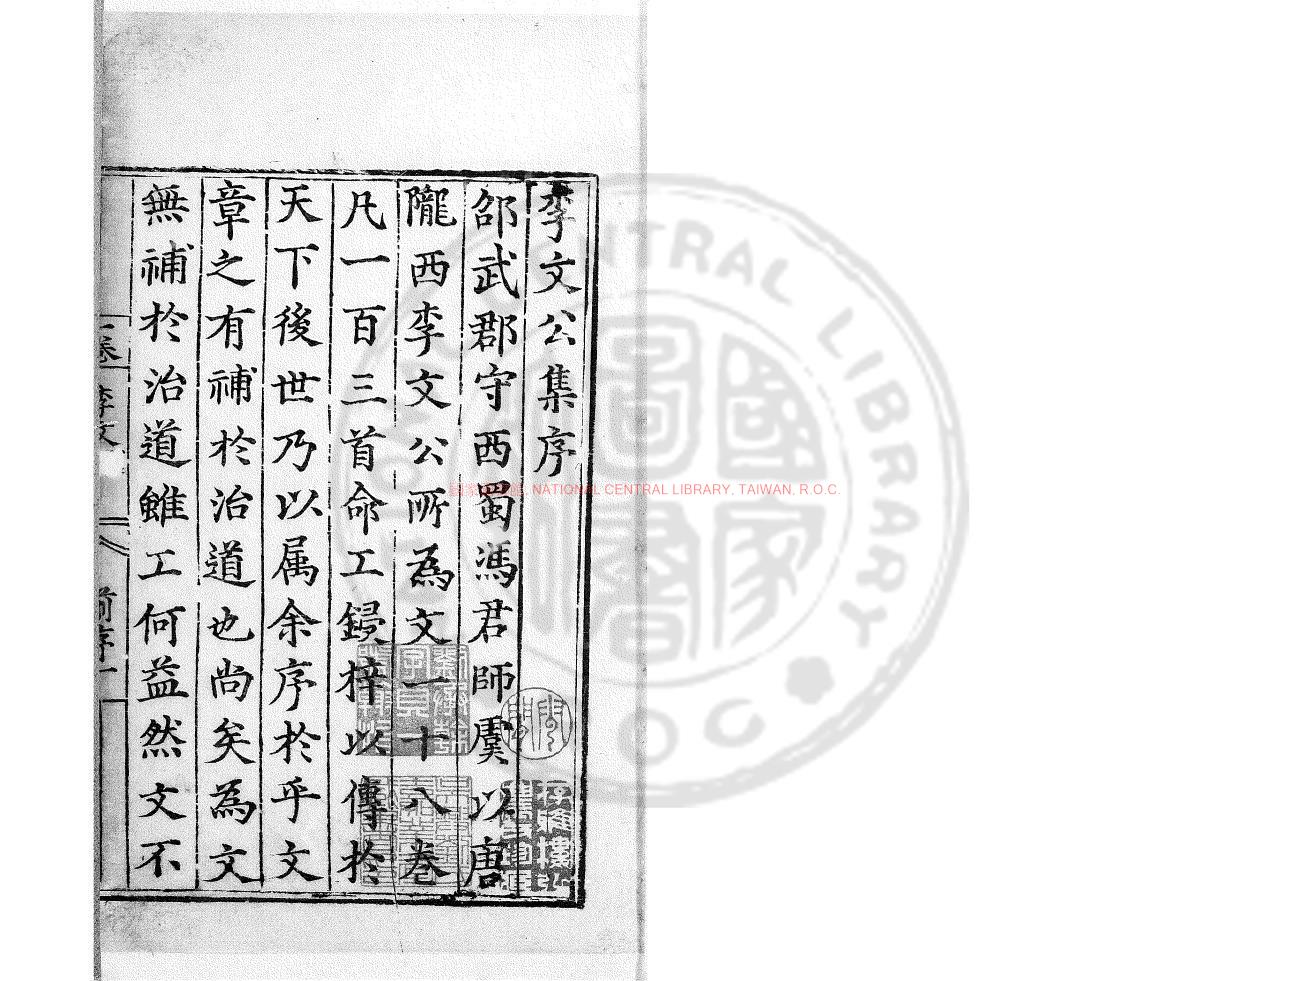 李文公集序
邵武郡守西蜀馮君師虞以唐
隴西李文公所為文一十八卷
凡一百三首命工鋟梓以傳於
天下後世乃以属余序於乎文
章之有補於治道也尚矣為文
無補於治道雖工何益然文不
卷
李文
前序一
NATIONAL CENTRAL LIBRARY, TAIWAN, R.O.C.
CENTRAL LIBRARY